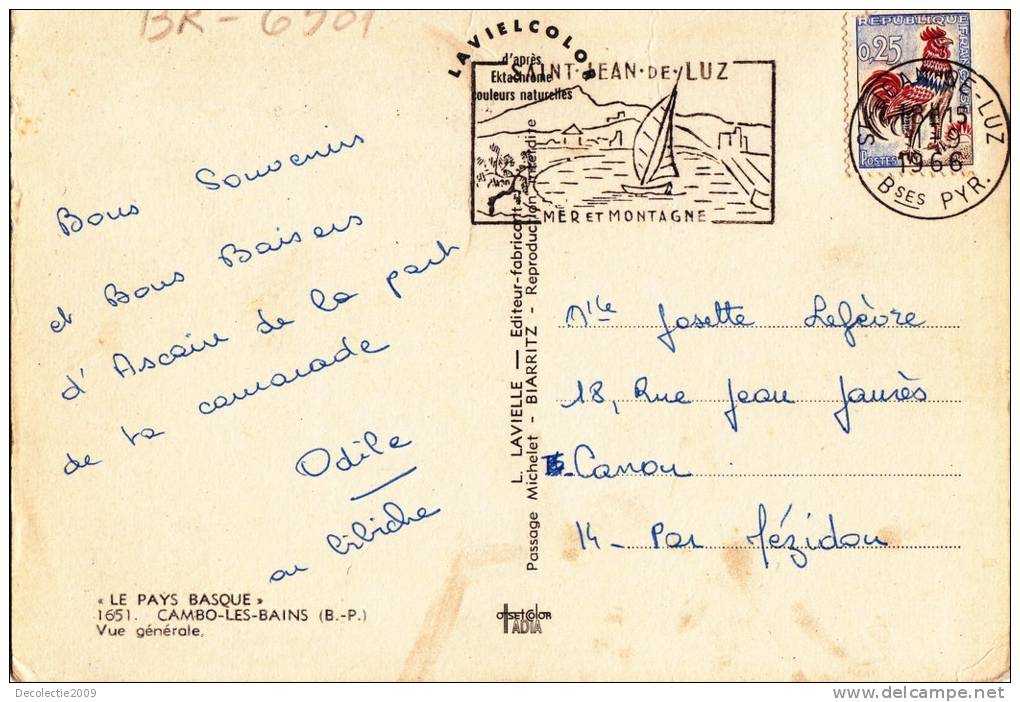 BR-6901
LAVIELCOLOR
d'après
Ektachrome
couleurs naturelles
SAINT·JEAN·DE·LUZ
MER ET MONTAGNE
REPUBLIQUE FRANÇAISE
0,25
POSTES
1966
Bses PYR.
Bons Souvenirs
et Bons Baisers
d'Ascain de la part
de ta camarade
Odile
ou Bibiche
Mlle Josette Lefèvre
18, Rue Jean Jaurès
Canon
14 - Par Mézidon
L. LAVIELLE — Editeur-fabricant
Passage Michelet - BIARRITZ - Reproduction interdite
« LE PAYS BASQUE »
1651. CAMBO-LES-BAINS (B.-P.)
Vue générale.
OFFSET COLOR
IADIA
Decolectie2009
www.delcampe.net